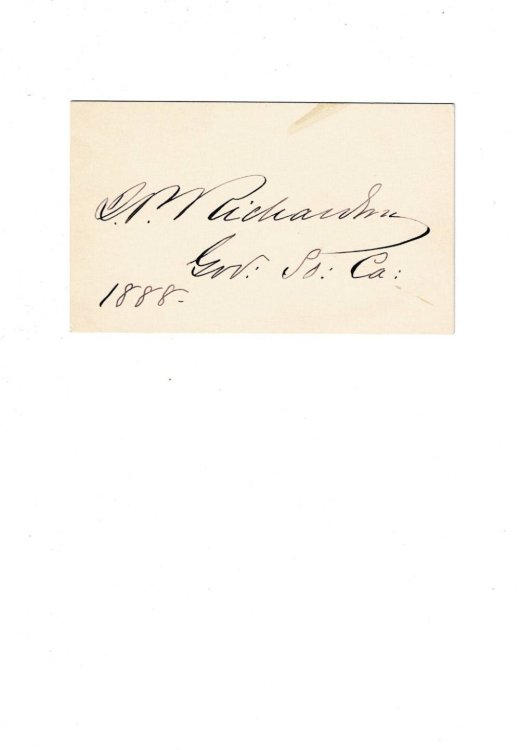 J.P. Richardson
Gov: So: Ca:
1888-